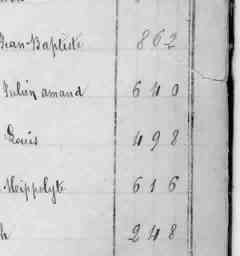 Jean-Baptiste 862
Julien amand 640
Louis 498
Hippolyte 616
h 248